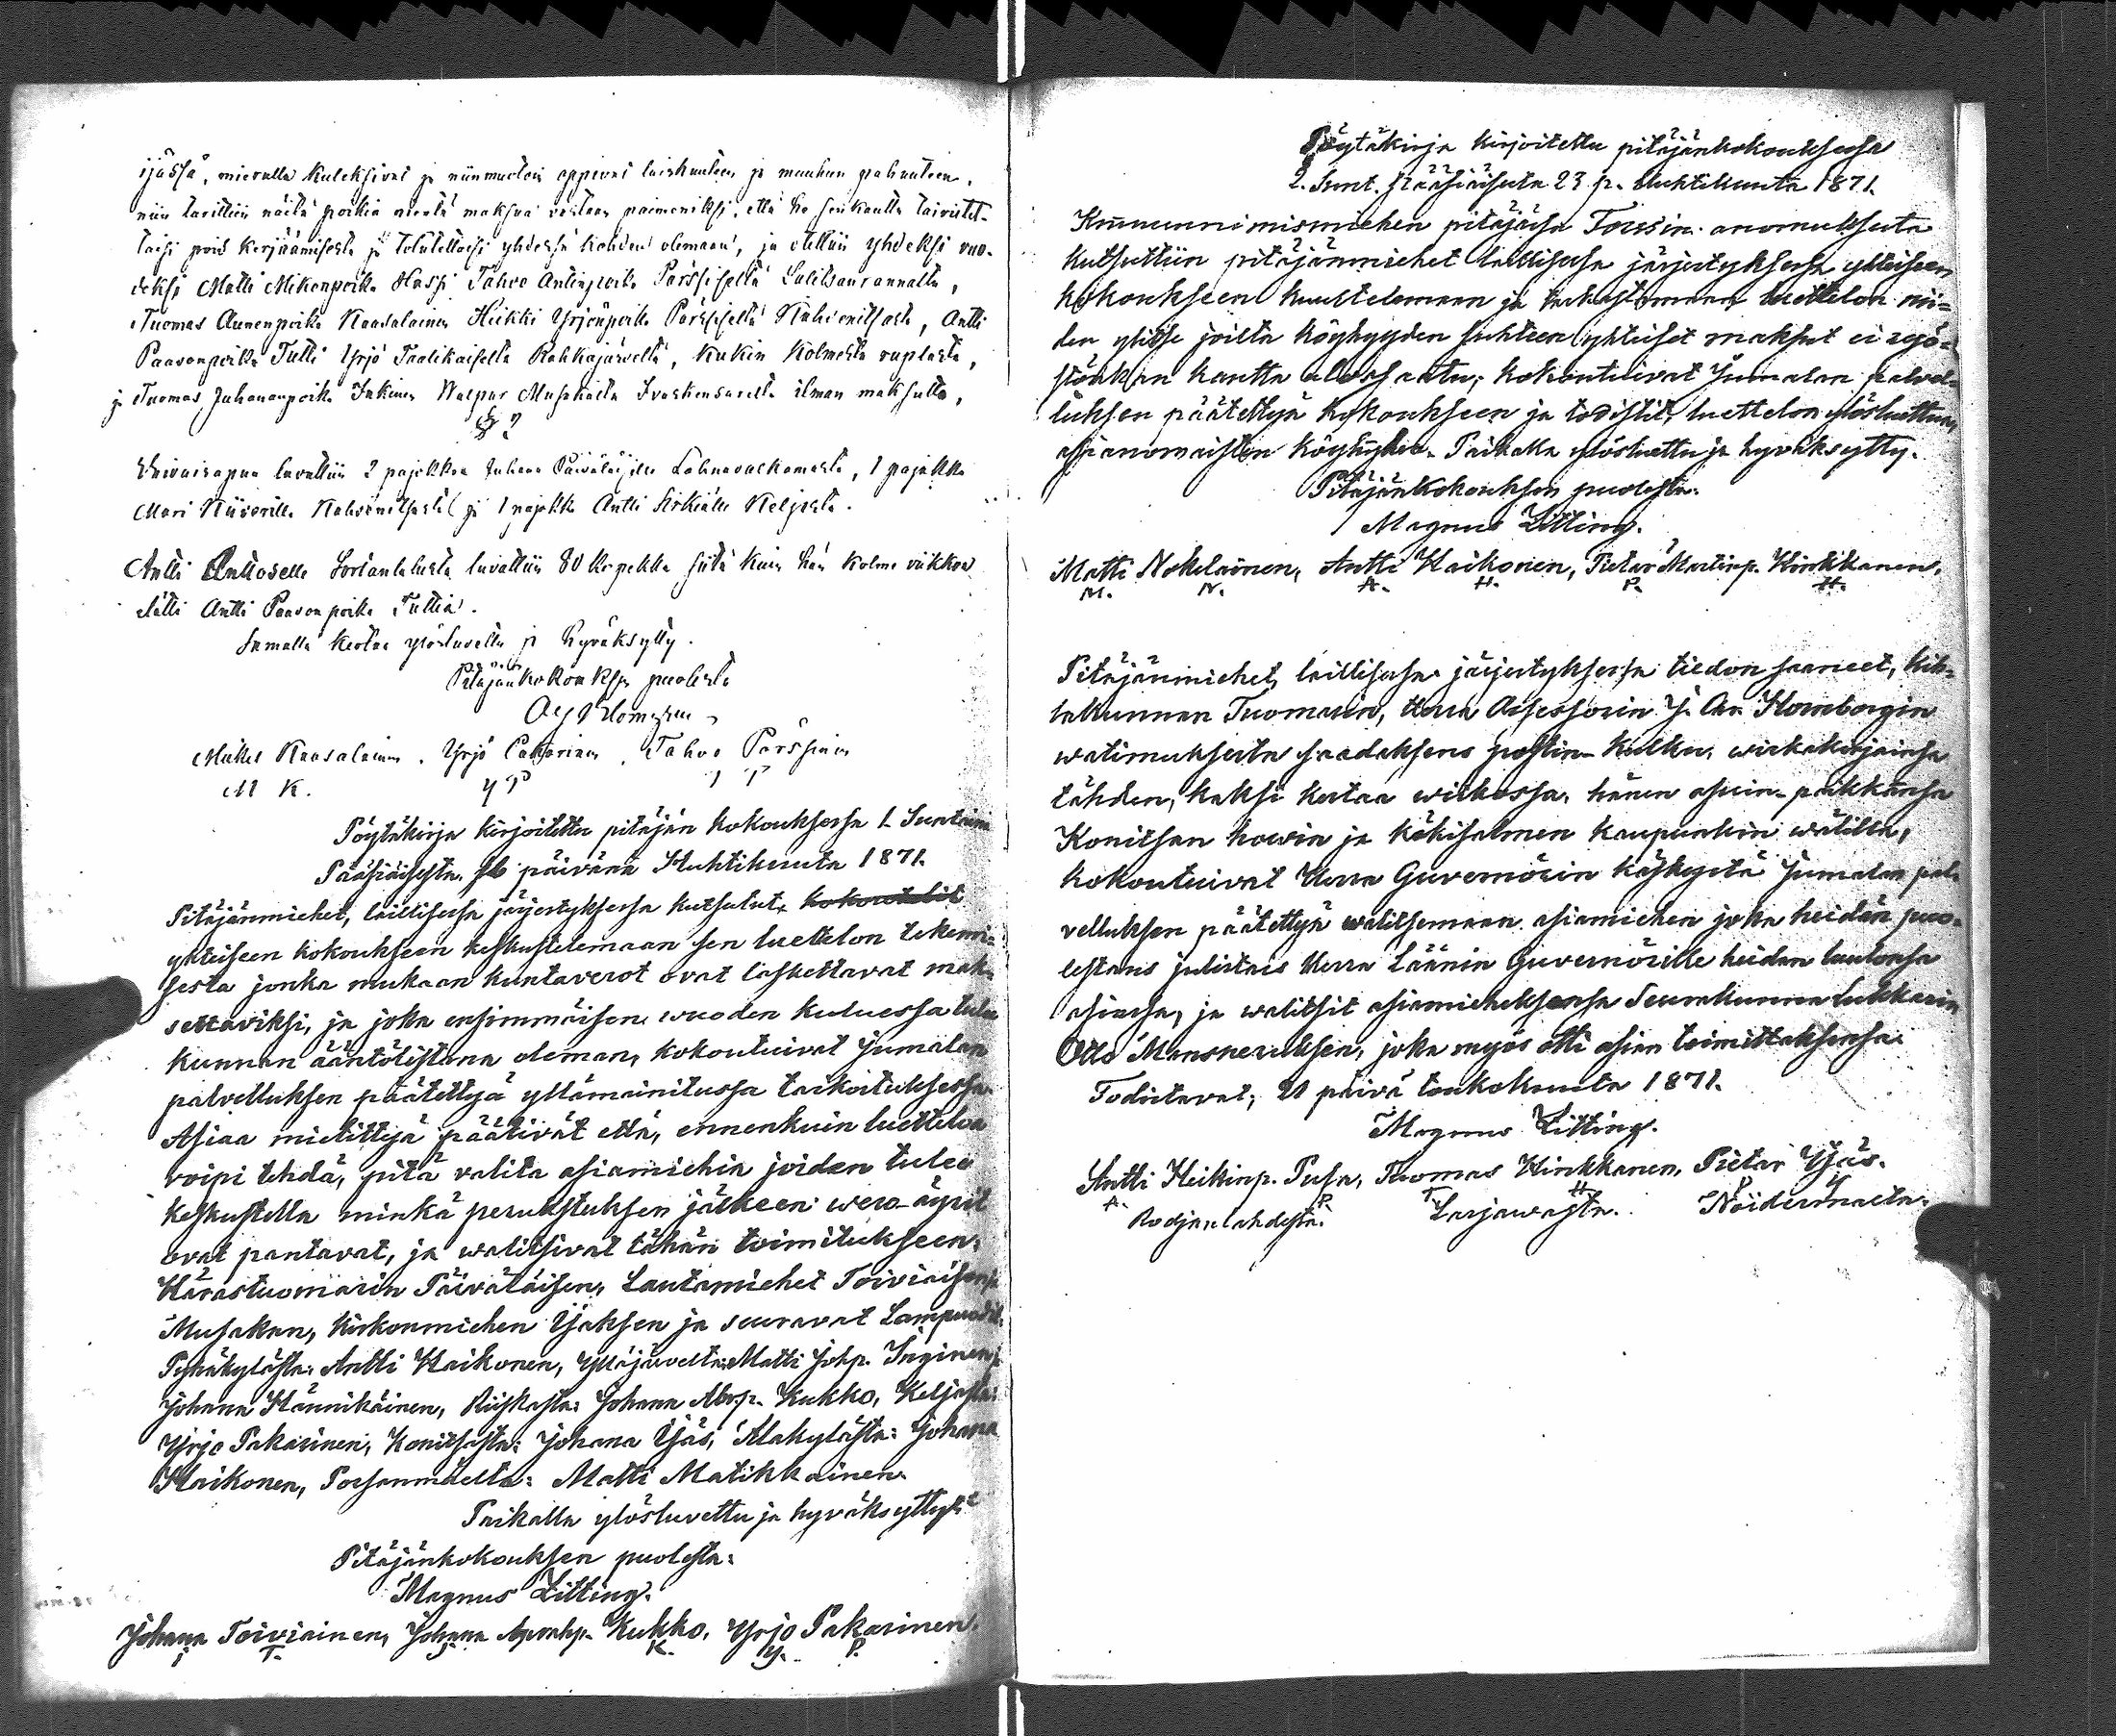 ijässä, mieralla kuleksivat ja niinmuotoin oppivat laiskuuteen ja muuhun pahuuteen,
niin tarittiin näitä poikia vastaan paimeniksi, että he sen kautta
pois kerjäämisestä ja totutettaisi yhdessä kohden olemaan, ja otettiin yhdeksi vuo-
deksi Matti Mikonpoika Hassi Tahvo Antinpoika Pärssiseltä
Tuomas Kaasalainen Heikki Yrjönpoika Pärssiseltä Kahvenitsasta, Antti
Paavonpoika Tutti Yrjö Rahkajärveltä, kukin kolmesta ruplasta,
ja Tuomas Juhananpoika Inkinen Musakalta ilman maksutta,
§ 2
Vaivaisapua luvattiin 2 pajakkoa Juhana Päiväläiselle, 1 pajakko
Mari Kiiverille Kahvenitsasta ja 1 pajakko Antti Keljasta.
Antti Anttoselle luvattiin 80 kopekka siitä kuin hän kolme viikkoa
elätti Antti Paavonpoika Tuttia.
Samalla kertaa ylösluvettu ja hyväksytty.
Pitäjänkokouksen puolesta
Kaasalainen. Yrjö Pakarinen. Tahvo Pärssinen
M K. Y P T P
Pöytäkirja kirjoitettu pitäjän kokouksessa 1. Suntaina
Pääsiäisestä 16 päivänä Huhtikuuta 1871.
Pitäjänmiehet, laillisessa järjestyksessä kutsutut, kokoontulit
yhteiseen kokoukseen keskustelemaan sen luettelon tekemi-
sestä jonka mukaan kuntaverot ovat laskettavat mak-
settaviksi, ja joka ensimmäisen wuoden kuluessa tulee
kunnan ääntölistana oleman, kokontuivat Jumalan
palvelluksen päätettyä yllämainitussa tarkoituksessa.
Asiaa mielittyä päätivät että, ennenkuin luetteloa
voipi tehdä, pitä valita asiamiehiä joiden tulee
keskustella minkä perustuksen jälkeen wero-äyrit
ovat pantavat, ja walitsivat tähän toimitukseen:
Härastuomarin Päiväläisen, Lautamiehet Toiviaisen ja
Musakan, Kirkonmiehen Yjäksen ja seuravat Lampuodit:
Pyhäkylästä: Antti Haikonen, Ylläjärveltä: Matti Johp. Inginen ja
Johana Hännikäinen, Riiskasta: Johana Abr.p. Kukko, Keljasta:
Yrjo Pakarinen, Konitsasta: Johana Yjäs, Alakylästä: Johana
Haikonen, Porsanmäeltä: Matti Matikkainen.
Paikalla ylösluvettu ja hyväksytty.
Pitäjänkokouksen puolesta:
Magnus Litting.
Johana Toiviainen, Johana Kukko, Yrjo Pakarinen.
J T. J K. Y. P.
Pöytäkirja kirjoitettu pitäjänkokouksessa
2. Sunt. Pääsiäisestä 23 p. Huhtikuuta 1871.
Kruununnimismiehen pitäjässä anomuksesta
kutsuttiin pitäjänmiehet laillisessa järjestyksessä yhteiseen
kokoukseen kuultelemaan ja luettelon nii-
den ylitse joilta köyhyyden suhteen yhteiset maksut ei ryö-
stönkän kautta ulossaatu; kokontuivat Jumalan palvel-
luksen päätettyä kokoukseen ja todistit, luettelon ylösluettua,
asianomaisten köyhyden. Paikalla ylösluettu ja hyväksytty.
Pitäjänkokouksen puolesta:
Magnus Litting.
Matti Nokelainen, Antti Haikonen, Pietar Martinp. Hinkkanen.
M. N. A. H. P. H.
Pitäjänmiehet, laillisessa järjestyksessä tiedon saaneet, kih-
lakunnan Tuomarin, Herra Assessorin Hornborgin
watimuksesta saadaksens postin-kulku, wirkakirjainsa
tähden, kaksi kertaa wiikossa, hänen asuin-paikkansa
Konitsan howin ja Käkisalmen kaupunkin wälillä,
kokontuivat Herra Guvernörin käskystä Jumalan pal-
velluksen päätettyä walitsemaan asiamiehen joka heidän puo-
lestans julistais Herra Läänin Guvernörille heidän luulonsa
asiassa, ja walitsit asiamieheksensä Seurakunnan lukkarin
Otto Mansneruksen, joka myös otti asian toimittaksensa.
Todistavat; 21 päivä toukokuuta 1871.
Magnus Litting.
Antti Heikinp. Pusa, Tuomas Hinkkanen, Pietar Yjäs.
A. P. T. H. P. Y.
Rodjanlahdesta. Larjawasta. Noidermaelta.